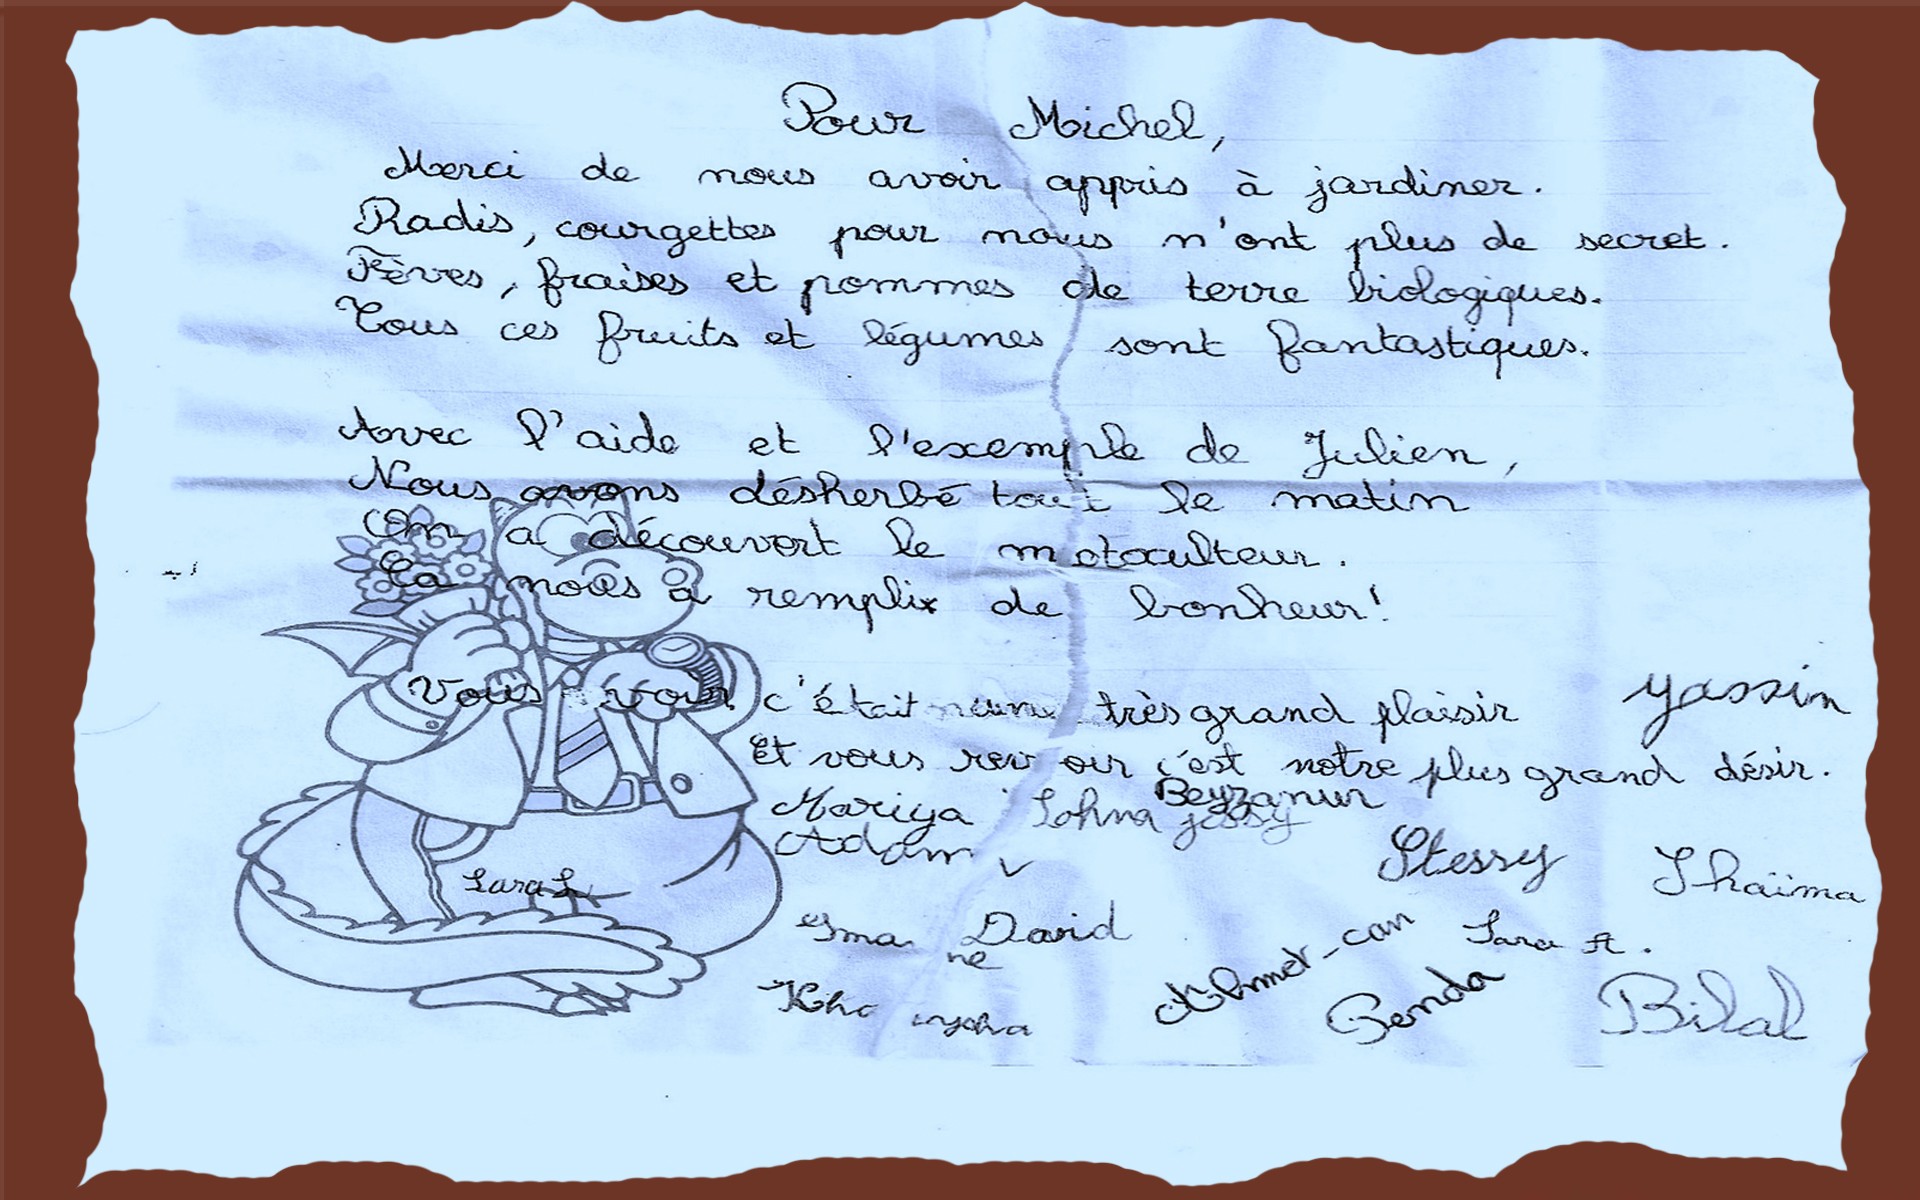 Pour Michel,
Merci de nous avoir appris à jardiner.
Radis, courgettes pour nous n'ont plus de secret.
Fèves, fraises et pommes de terre biologiques.
Tous ces fruits et légumes sont fantastiques.
Avec l'aide et l'exemple de Julien,
Nous avons désherbé tout le matin
On a découvert le motoculteur.
Ça nous a remplix de bonheur!
Vous voir c'était très grand plaisir
Et vous revoir c'est notre plus grand désir.
Yassin
Beyzanur
Mariya Lohna jessy
Adam
Stessy
Shaïma
Sara L
Imane
David
Ahmet-can
Sara A.
Bilal